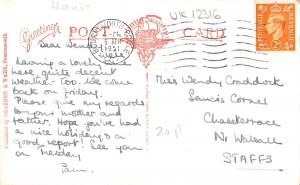 Hants
UK 12316
Greetings
POST CARD
BOURNEMOUTH
1951
POSTAGE REVENUE
Dear Wendy
Having a lovely
here quite decent
weather too. We come
back on Friday.
Please give my regards
to your mother and
father. Hope you've had
a nice holiday, & a
good report! See you
on Tuesday
Pam.
Miss Wendy Craddock
Corner
Chaseterrace
Nr Walsall
STAFFS
20p
Published by DEARDEN & WADE, Bournemouth